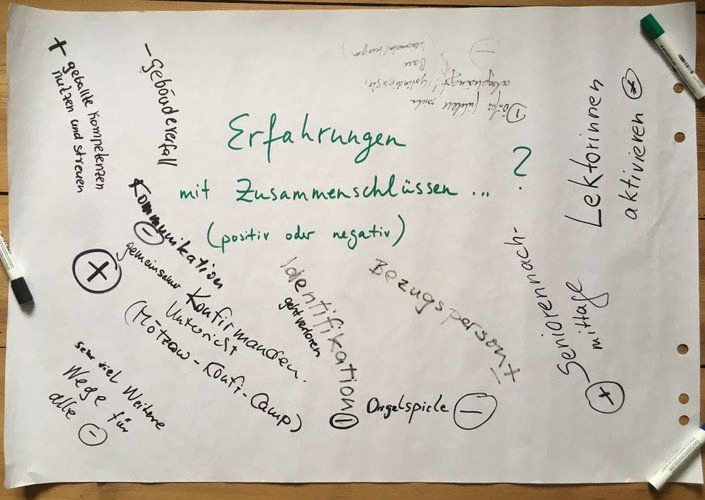 Erfahrungen
mit Zusammenschlüssen ... ?
(positiv oder negativ)
+ geballte Kompetenzen
nutzen und streuen
- Gebäudeverfall
Kommunikation
-
+
gemeinsamer
Konfirmanden-
Unterricht
(Mötzow-Konfi-Camp)
sehr viel Weitere
Wege für
alle -
Identifikation -
geht verloren
Bezugsperson ±
Orgelspiele -
Seniorennach-
mittage
+
Lektorinnen
aktivieren +
Dörfer fühlen sich
abgehängt!
Bau
-